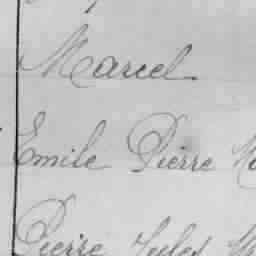 Marcel
Emile Pierre
Pierre Jules